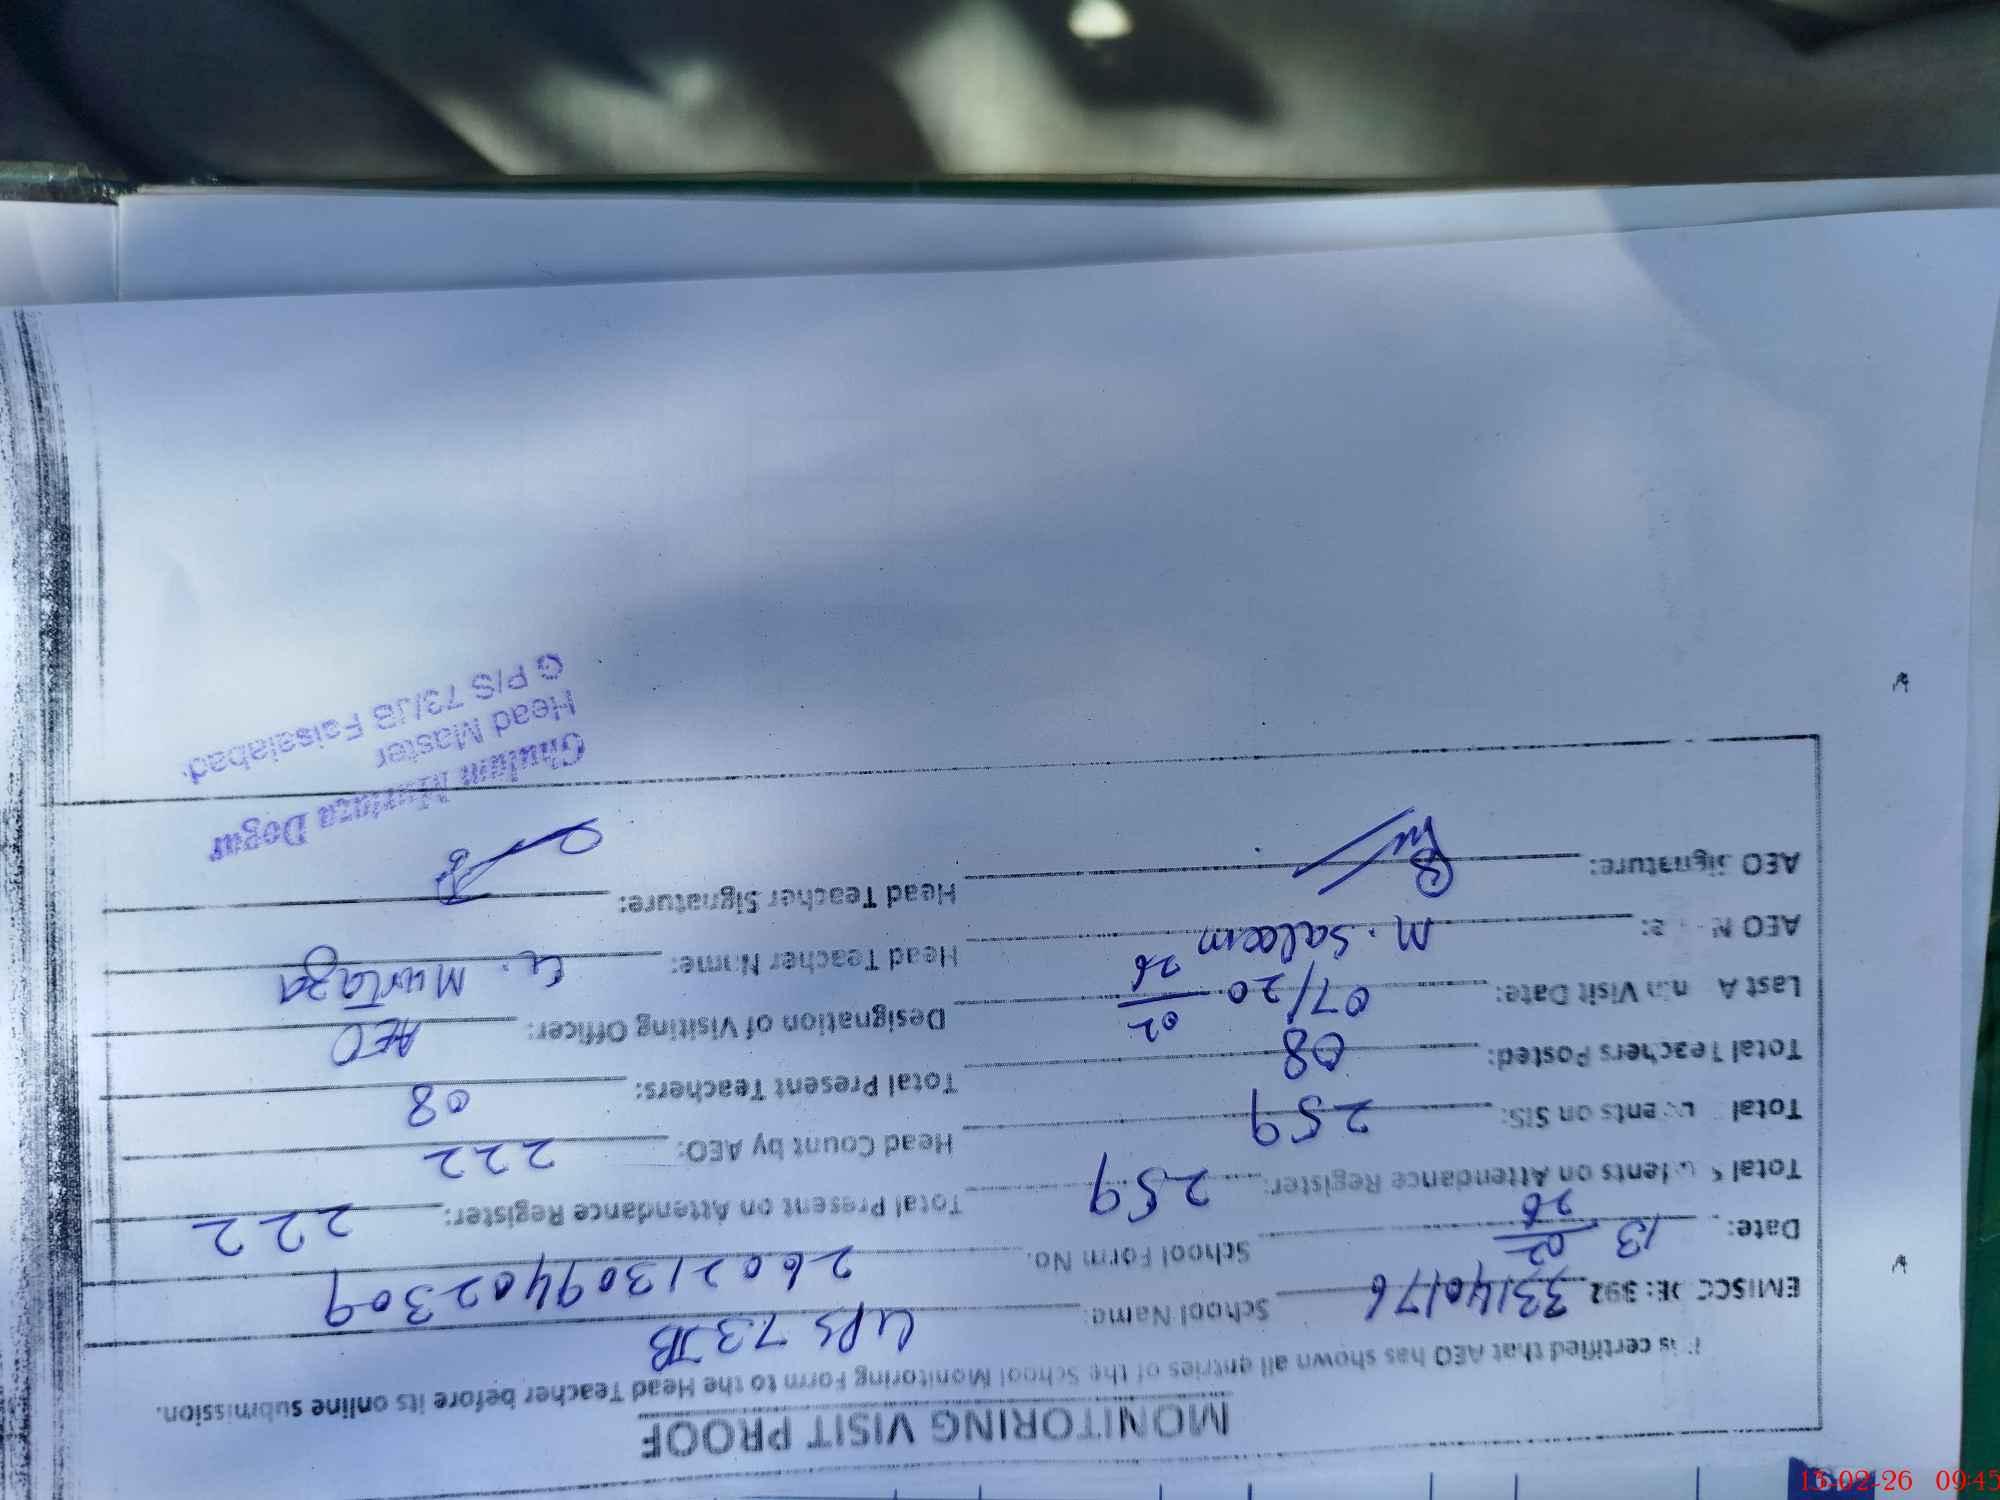 MONITORING VISIT PROOF
It is certified that AEO has shown all entries of the School Monitoring Form to the Head Teacher before its online submission.
EMISCODE: 392 33140176 School Name: GPS 73 JB
Date: 13 02/26 School Form No. 2602130940 2309
Total Students on Attendance Register: 259 Total Present on Attendance Register: 222
Total Students on SIS: 259 Head Count by AEO: 222
Total Teachers Posted: 08 Total Present Teachers: 08
Last Visit Date: 07/20 02/26 Designation of Visiting Officer: AEO
AEO Name: M. Saleem Head Teacher Name: G. Murtaza
AEO Signature: Head Teacher Signature:
Ghulam Murtaza Dogar
Head Master
G P/S 73/JB Faisalabad
13-02-26 09:45